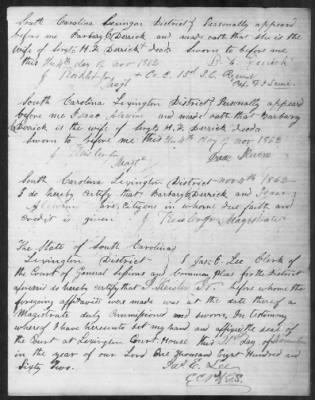 South Carolina Lexington District } Personally appeared
before me Barbary E Derrick and made oath that she is the
wife of Sergt H. F. Derrick decd Sworn to before me
this the 4th day of Nov 1862 B. E. Derrick
J Magt + Co. C. 15th S.C. Regiment
South Carolina Lexington District } Personally appeared
before me Isaac and made oath that Barbary
Derrick is the wife of Sergt H. F. Derrick decd
Sworn to before me this the 4th Nov 1862
J Magte Isaac
South Carolina Lexington District Nov 4th 1862
I do hereby certify that Barbary E Derrick and Isaac
are citizens in whom due faith and
credit is given J Magistrate
The State of South Carolina
Lexington District I Jas. E. Lee Clerk of
the Court of General Sessions and Common Pleas for the District
aforesaid do hereby certify that before whom the
foregoing affidavits was made was at the date thereof a
Magistrate duly Commissioned and sworn, In testimony
whereof I have hereunto set my hand and affixed the seal of
the Court at Lexington Court House this day of November
in the year of our Lord One Thousand Eight Hundred and
Sixty Two.
Jas E. Lee